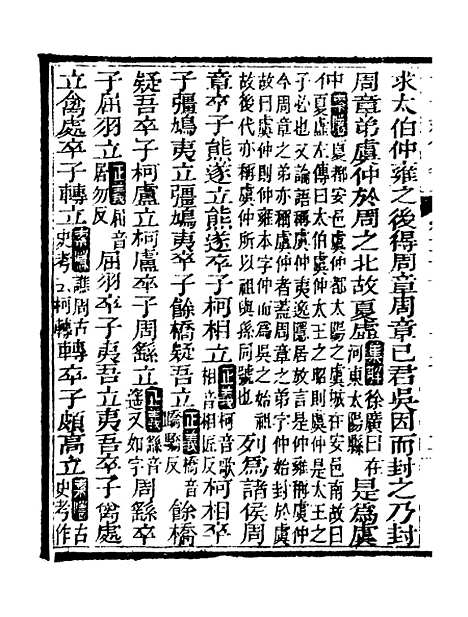 求太伯仲雍之後得周章周章已君吳因而封之乃封
周章弟虞仲於周之北故夏虛集解徐廣曰在河東太陽縣是為虞
仲索隱夏都安邑虞仲都太陽之虞城在安邑南故曰夏虛左傳曰太伯虞仲太王之昭則虞仲是太王之
子必也又論語稱虞仲夷逸隱居放言是仲雍稱虞仲今周章之弟亦稱虞仲者蓋周章之弟字仲始封於虞
故曰虞仲則仲雍本字仲而為吳之始祖故後代亦稱虞仲所以祖與孫同號也列為諸侯周
章卒子熊遂立熊遂卒子柯相立正義柯音歌相音相匠反柯相卒
子彊鳩夷立彊鳩夷卒子餘橋疑吾立正義橋音蹻驕反餘橋
疑吾卒子柯盧立柯盧卒子周繇立正義繇音遙又如字周繇卒
子屈羽立正義屈音居勿反屈羽卒子夷吾立夷吾卒子禽處
立禽處卒子轉立索隱譙周古史考云柯轉轉卒子頗高立索隱古史考作